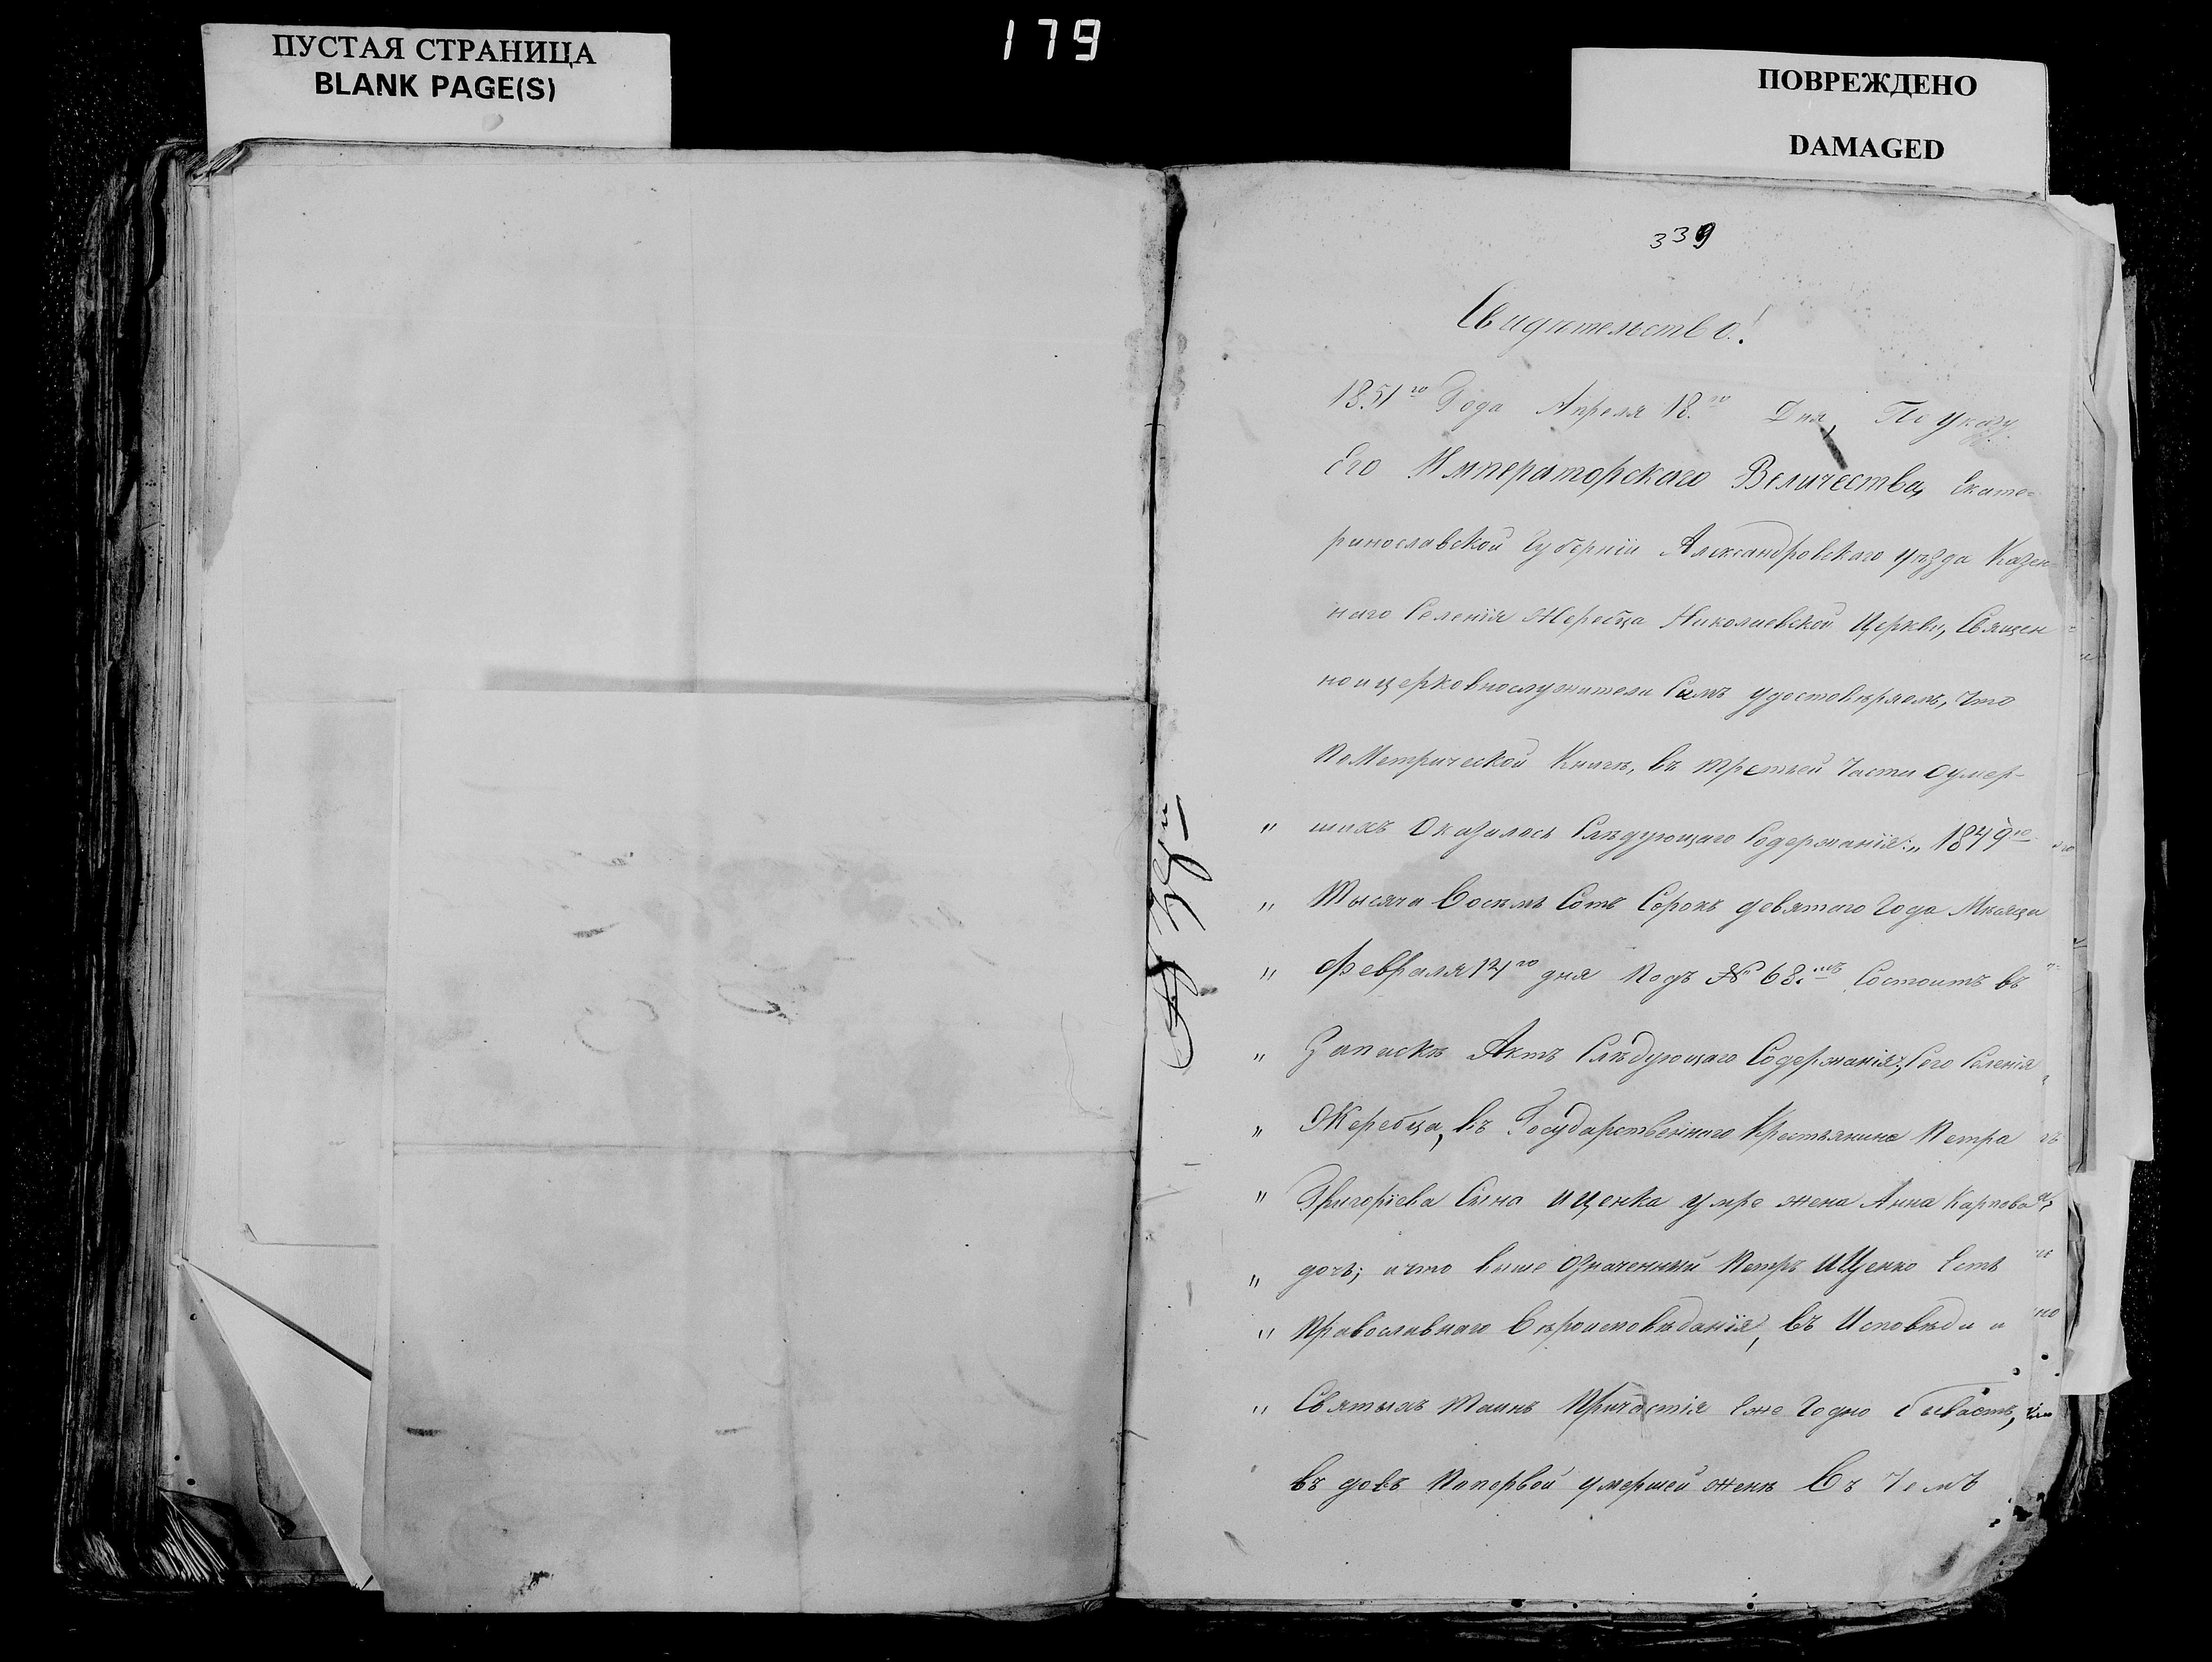 ПУСТАЯ СТРАНИЦА
BLANK PAGE(S)
179
ПОВРЕЖДЕНО
DAMAGED
339
Свидѣтельство!
1851го Года Апреля 18.го Дня, По указу
Его Императорскаго Величества, Екате=
ринославской Губерніи Александровскаго уѣзда Казен
наго Селенія Жеребца Николаевской Церкви, Священ
ноицерковнослужители Симъ удостовѣряемъ, что
по Метрической Книгѣ, въ третьей Части Оумер-
„ шихъ Оказалось Слѣдующаго Содержанія: „ 1849го
„ Тысяча Восемь Сотъ Сорокъ девятаго Года Мѣсяца
„ Февраля 14го дня подъ № 68.мъ Состоитъ въ
„ Запискѣ Актъ Слѣдующаго Содержанія: „ Сего Селенія
„ Жеребца, въ Государственнаго Крестьянина Петра
„ Григоріева Сына Ищенка умре жена Анна Карпова
„ дочь; ичто выше Означенный Петръ Ищенко Есть
„ православнаго Вѣроисповѣданія, въ Исповѣди и
„ Святыхъ Таинъ Причастія Еже Годно бываетъ,
въ довъ Попервой умершей женѣ Въ Чемъ